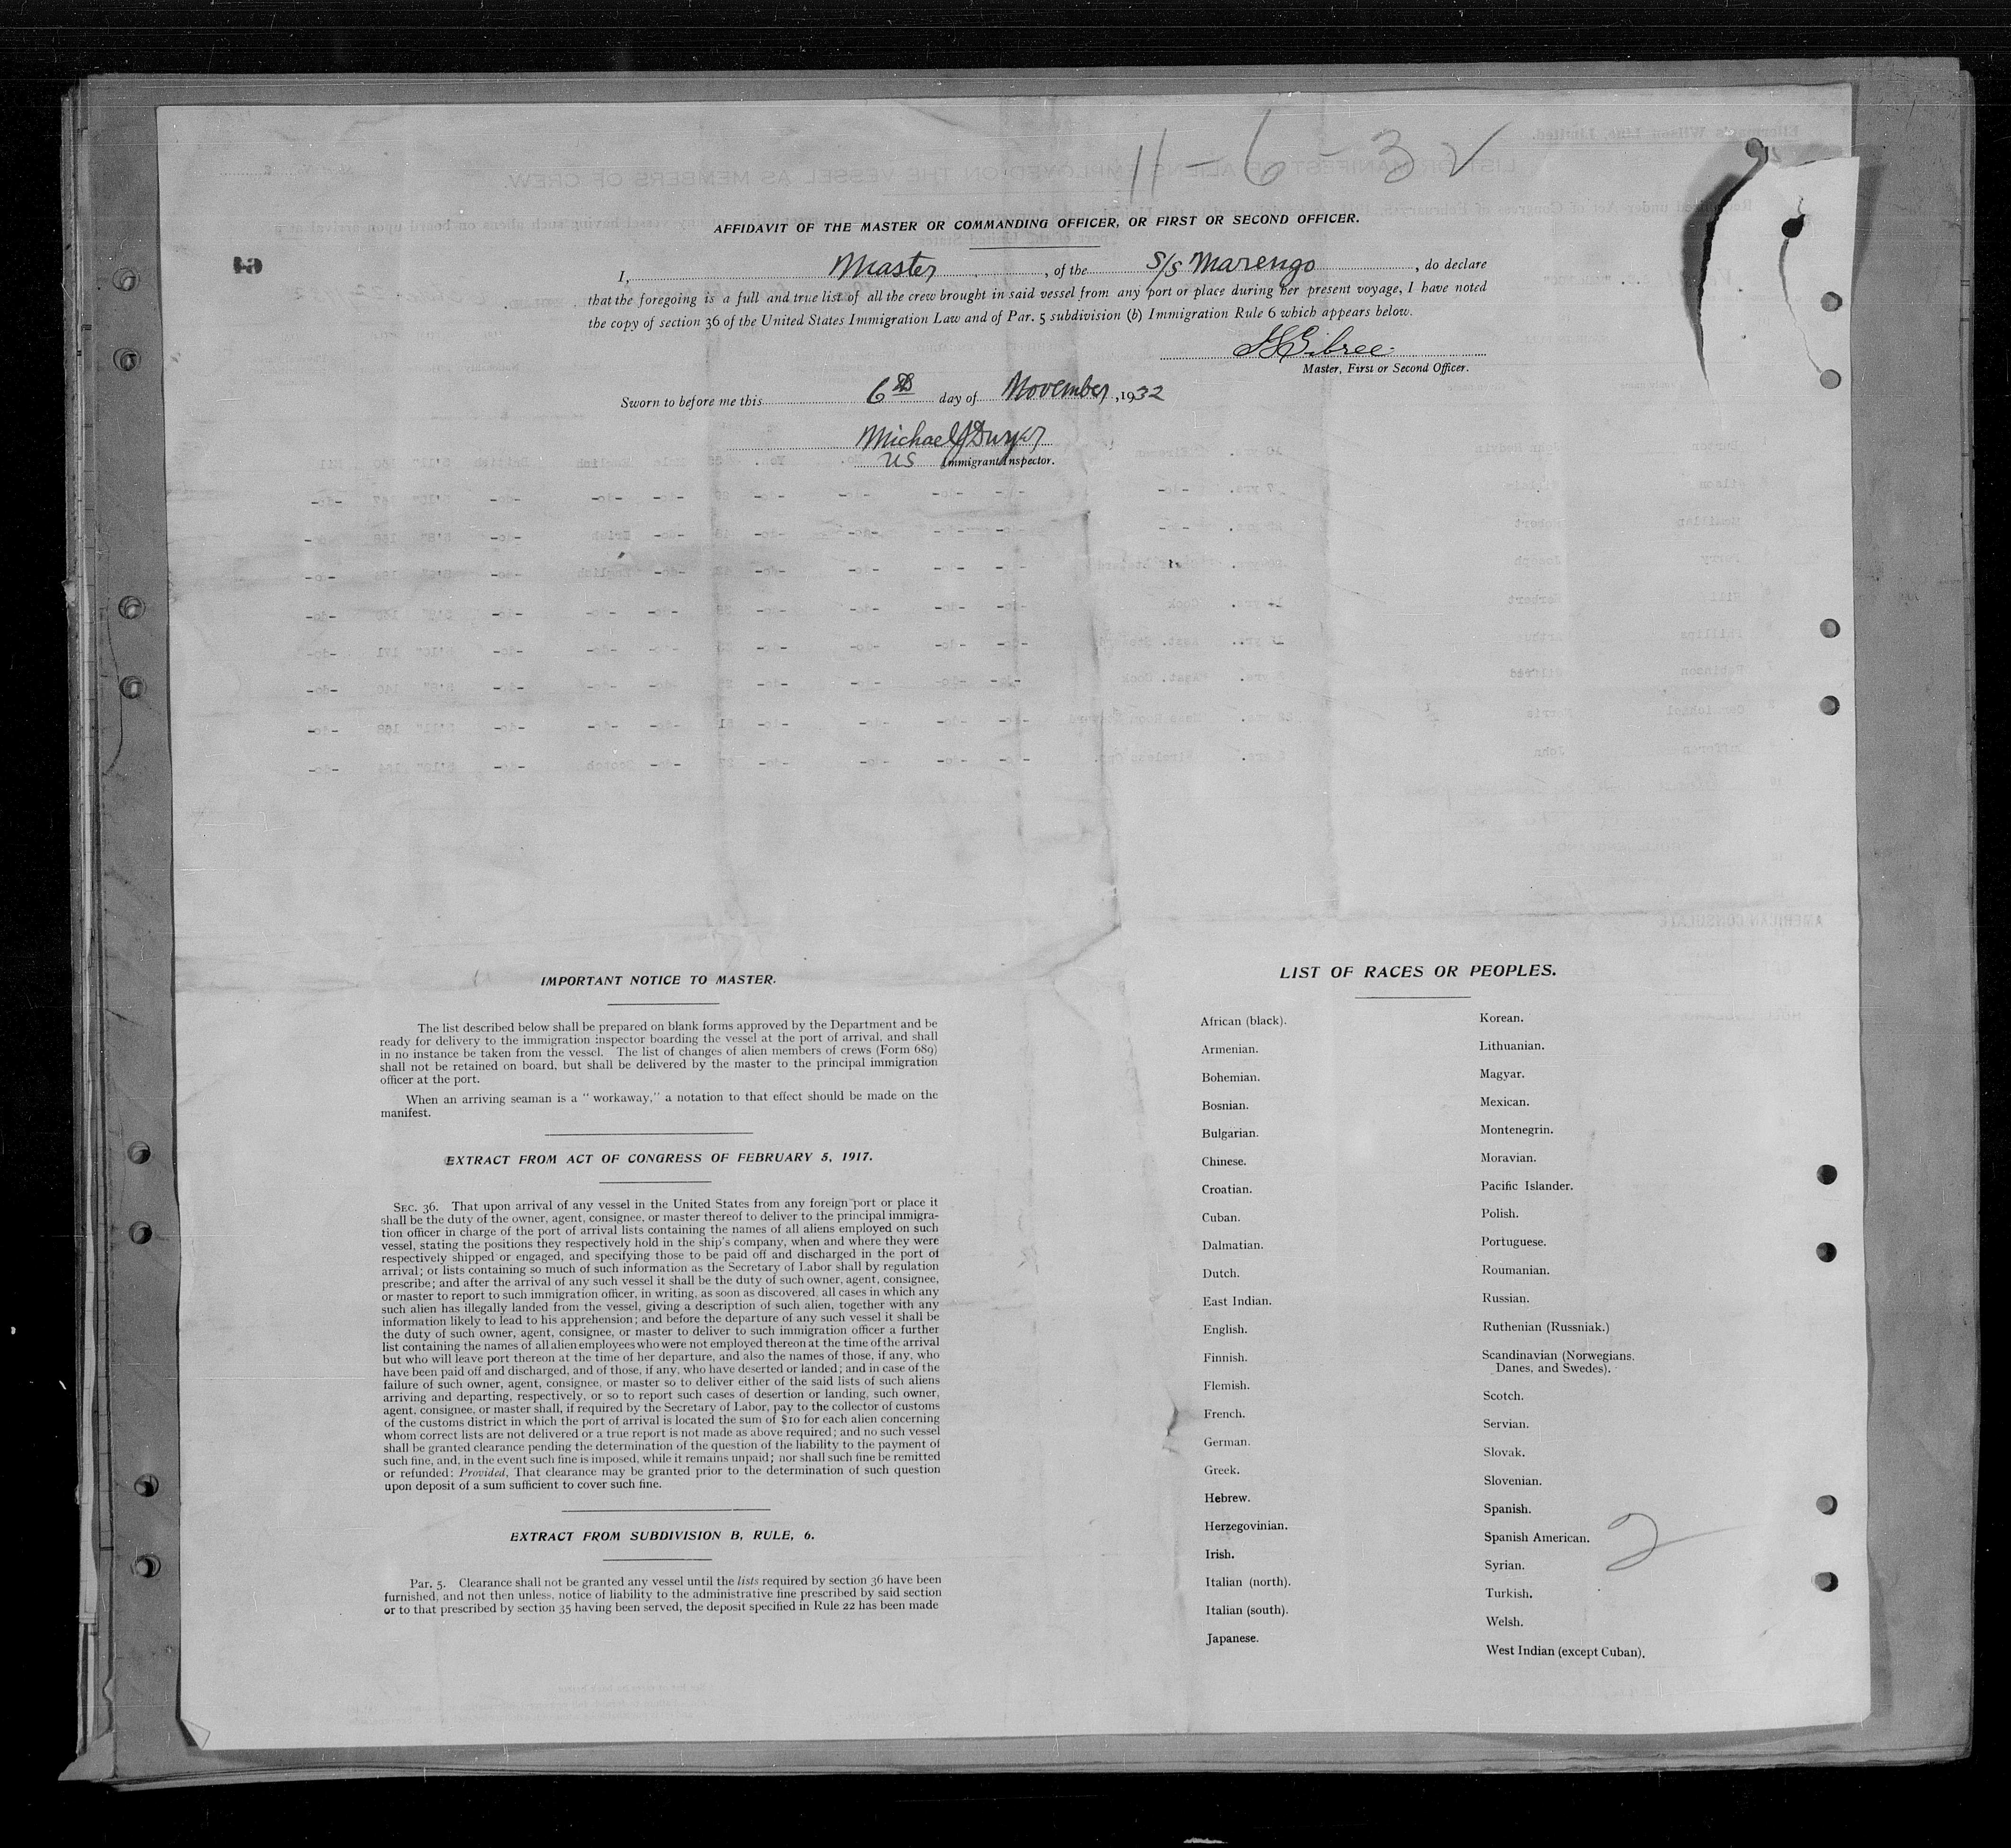 11-6-32
AFFIDAVIT OF THE MASTER OR COMMANDING OFFICER, OR FIRST OR SECOND OFFICER.
I, Master, of the S/S Marengo, do declare
that the foregoing is a full and true list of all the crew brought in said vessel from any port or place during her present voyage, I have noted
the copy of section 36 of the United States Immigration Law and of Par. 5 subdivision (b) Immigration Rule 6 which appears below.
Master, First or Second Officer.
Sworn to before me this 6th day of November, 1932
Michael J Dwyer
US Immigrant Inspector.
IMPORTANT NOTICE TO MASTER.
The list described below shall be prepared on blank forms approved by the Department and be
ready for delivery to the immigration inspector boarding the vessel at the port of arrival, and shall
in no instance be taken from the vessel. The list of changes of alien members of crews (Form 689)
shall not be retained on board, but shall be delivered by the master to the principal immigration
officer at the port.
When an arriving seaman is a "workaway," a notation to that effect should be made on the
manifest.
EXTRACT FROM ACT OF CONGRESS OF FEBRUARY 5, 1917.
SEC. 36. That upon arrival of any vessel in the United States from any foreign port or place it
shall be the duty of the owner, agent, consignee, or master thereof to deliver to the principal immigra-
tion officer in charge of the port of arrival lists containing the names of all aliens employed on such
vessel, stating the positions they respectively hold in the ship's company, when and where they were
respectively shipped or engaged, and specifying those to be paid off and discharged in the port of
arrival; or lists containing so much of such information as the Secretary of Labor shall by regulation
prescribe; and after the arrival of any such vessel it shall be the duty of such owner, agent, consignee,
or master to report to such immigration officer, in writing, as soon as discovered, all cases in which any
such alien has illegally landed from the vessel, giving a description of such alien, together with any
information likely to lead to his apprehension; and before the departure of any such vessel it shall be
the duty of such owner, agent, consignee, or master to deliver to such immigration officer a further
list containing the names of all alien employees who were not employed thereon at the time of the arrival
but who will leave port thereon at the time of her departure, and also the names of those, if any, who
have been paid off and discharged, and of those, if any, who have deserted or landed; and in case of the
failure of such owner, agent, consignee, or master so to deliver either of the said lists of such aliens
arriving and departing, respectively, or so to report such cases of desertion or landing, such owner,
agent, consignee, or master shall, if required by the Secretary of Labor, pay to the collector of customs
of the customs district in which the port of arrival is located the sum of $10 for each alien concerning
whom correct lists are not delivered or a true report is not made as above required; and no such vessel
shall be granted clearance pending the determination of the question of the liability to the payment of
such fine, and, in the event such fine is imposed, while it remains unpaid; nor shall such fine be remitted
or refunded: Provided, That clearance may be granted prior to the determination of such question
upon deposit of a sum sufficient to cover such fine.
EXTRACT FROM SUBDIVISION B, RULE, 6.
Par. 5. Clearance shall not be granted any vessel until the lists required by section 36 have been
furnished, and not then unless, notice of liability to the administrative fine prescribed by said section
or to that prescribed by section 35 having been served, the deposit specified in Rule 22 has been made
LIST OF RACES OR PEOPLES.
African (black).
Armenian.
Bohemian.
Bosnian.
Bulgarian.
Chinese.
Croatian.
Cuban.
Dalmatian.
Dutch.
East Indian.
English.
Finnish.
Flemish.
French.
German.
Greek.
Hebrew.
Herzegovinian.
Irish.
Italian (north).
Italian (south).
Japanese.
Korean.
Lithuanian.
Magyar.
Mexican.
Montenegrin.
Moravian.
Pacific Islander.
Polish.
Portuguese.
Roumanian.
Russian.
Ruthenian (Russniak.)
Scandinavian (Norwegians.
Danes, and Swedes).
Scotch.
Servian.
Slovak.
Slovenian.
Spanish.
Spanish American.
Syrian.
Turkish.
Welsh.
West Indian (except Cuban).
2